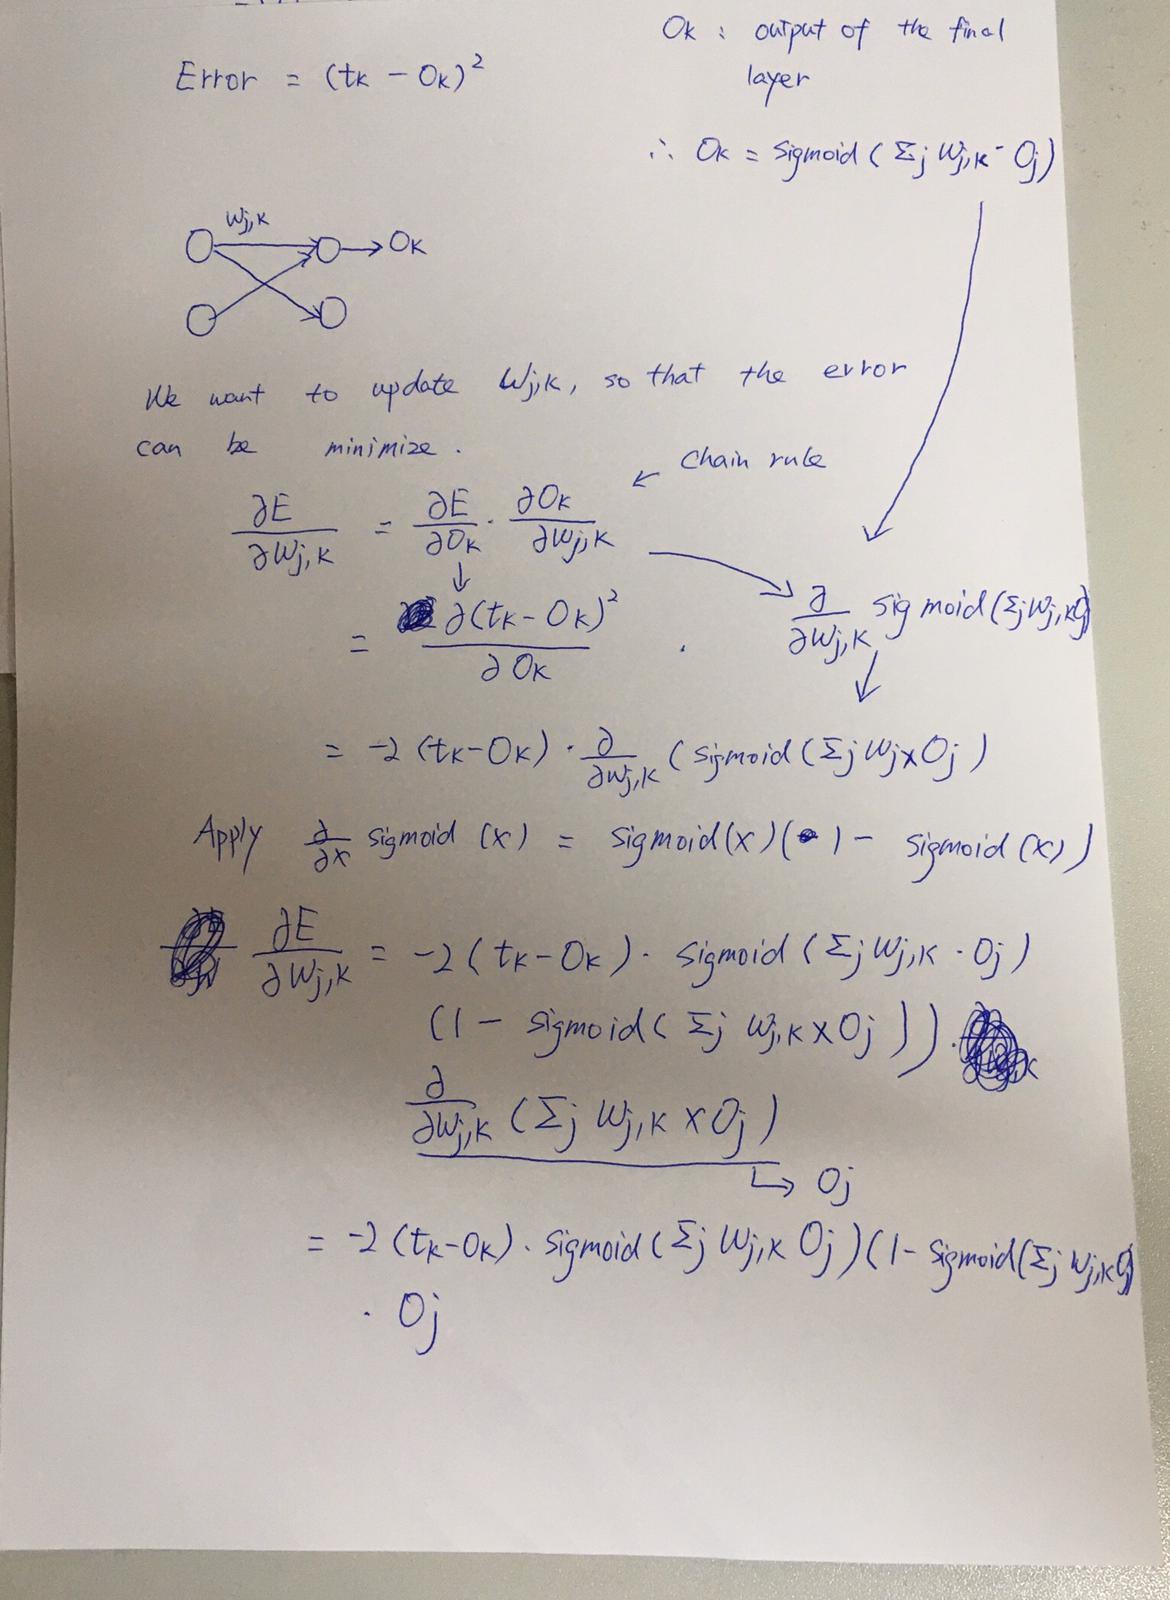 Ok : output of the final
layer
Error = (tk - Ok)²
∴ Ok = sigmoid ( Σj Wj,k · Oj)
Wj,k
Ok
We want to update Wj,k, so that the error
can be minimize .
← Chain rule
∂E/∂Wj,k = ∂E/∂Ok · ∂Ok/∂Wj,k
= ∂(tk - Ok)²/∂Ok · ∂/∂Wj,k sigmoid(ΣjWj,kOj)
= -2 (tk-Ok) · ∂/∂Wj,k (sigmoid(Σj Wj×Oj )
Apply ∂/∂x sigmoid (x) = sigmoid(x)( 1 - sigmoid (x))
∂E/∂Wj,k = -2 ( tk-Ok ) · sigmoid (Σj Wj,k · Oj )
(1 - sigmoid( Σj Wj,k × Oj )) ·
∂/∂Wj,k (Σj Wj,k × Oj )
↳ Oj
= -2 (tk-Ok) · sigmoid(Σj Wj,k Oj )(1-sigmoid(Σj Wj,kOj)
· Oj